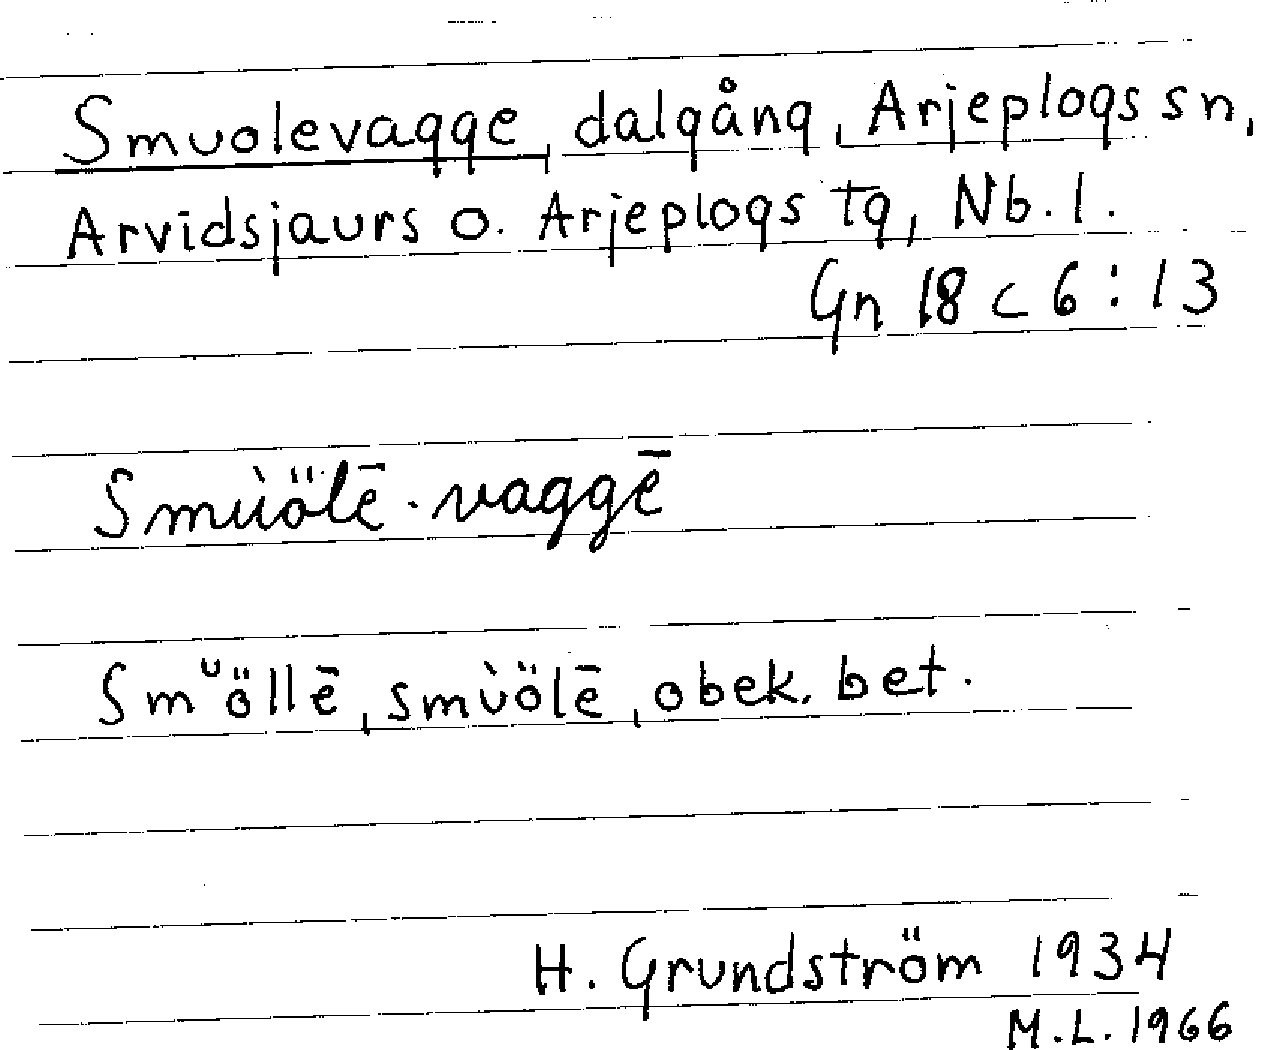 Smuolevagge, dalgång, Arjeplogs sn,
Arvidsjaurs o. Arjeplogs tg, Nb. l.
Gn 18 c 6:13
Smùölē-vaggē
Smᵘöllē, smùölē, obek. bet.
H. Grundström 1934
M.L. 1966